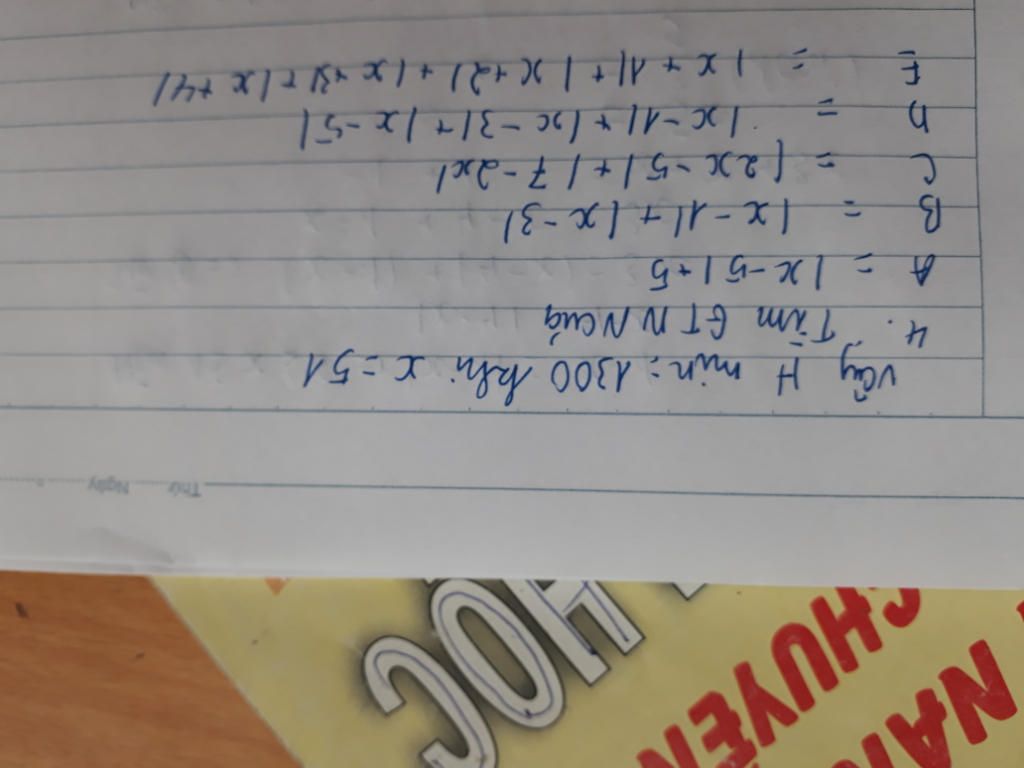 Thứ Ngày
Vậy H min = 1300 khi x = 51
4. Tìm GTNN của
A = |x - 5| + 5
B = |x - 1| + |x - 3|
C = |2x - 5| + |7 - 2x|
D = |x - 1| + |x - 3| + |x - 5|
E = |x + 1| + |x + 2| + |x + 3| + |x + 4|
HỌC
CHUYÊN
NÂN